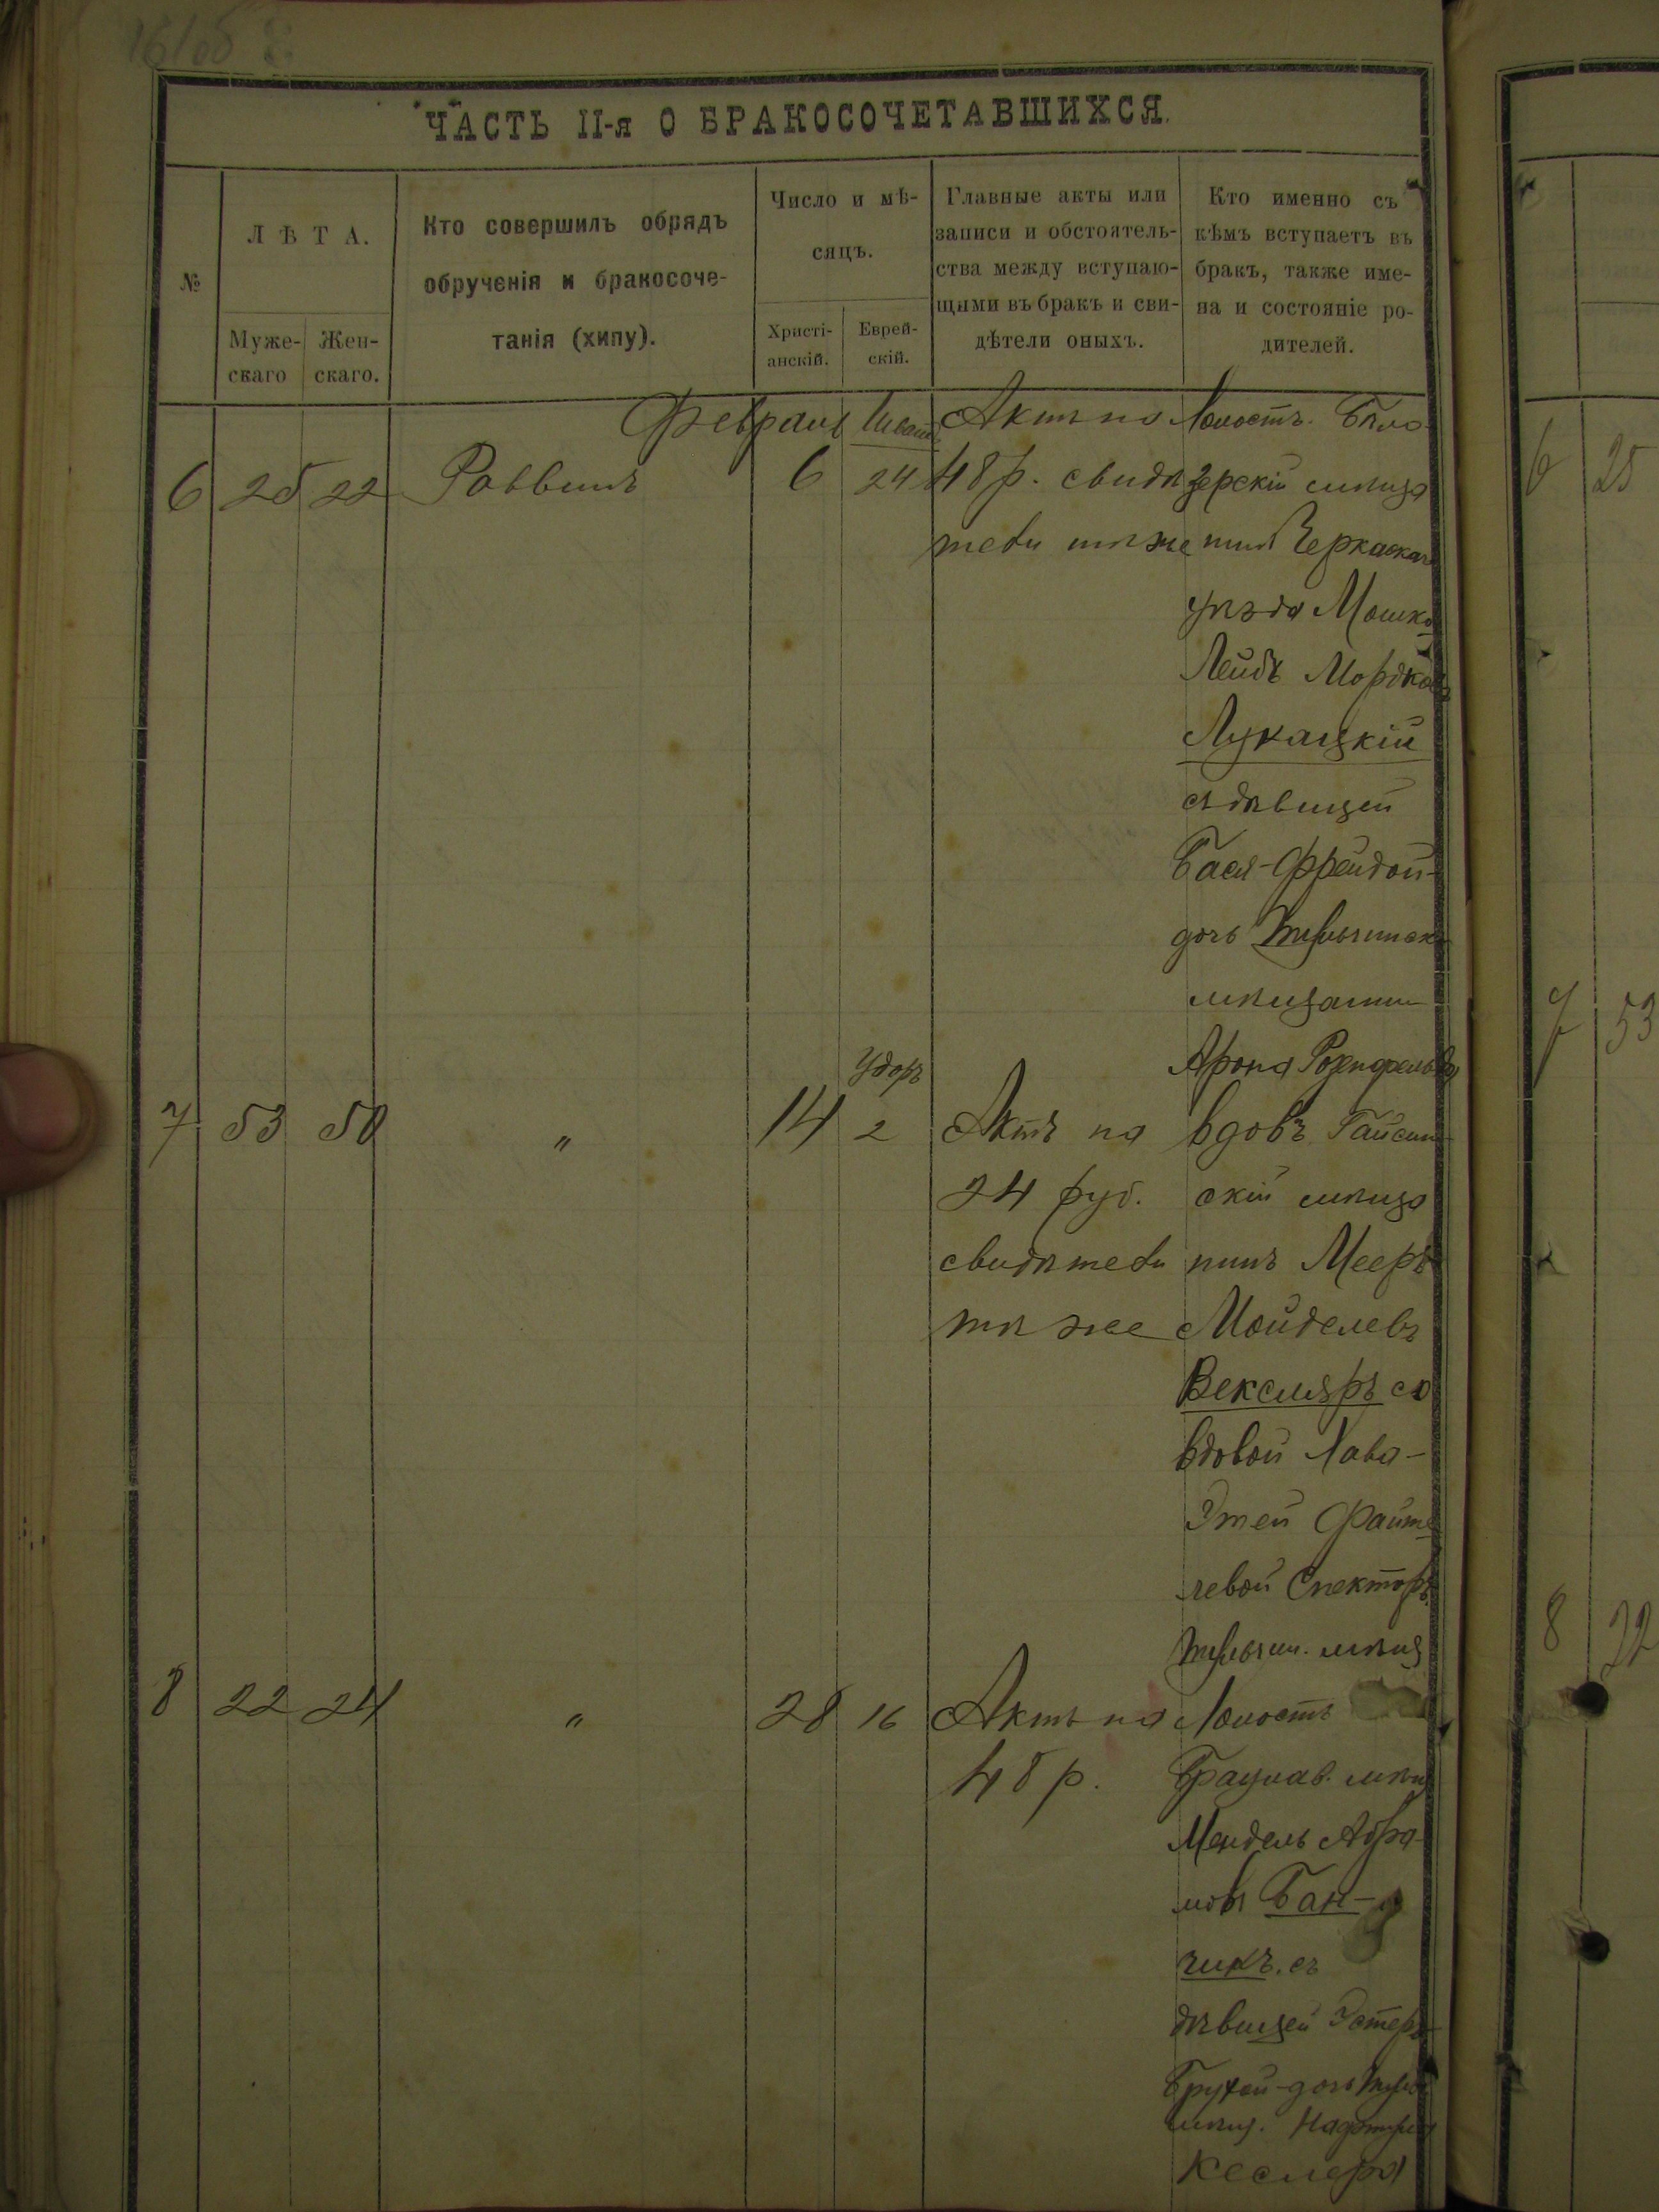 ЧАСТЬ II-я О БРАКОСОЧЕТАВШИХСЯ.
№
ЛѢТА.
Муже-
скаго
Жен-
скаго.
Кто совершилъ обрядъ
обрученія и бракосоче-
танія (хипу).
Число и мѣ-
сяцъ.
Христі-
анскій.
Еврей-
скій.
Главные акты или
записи и обстоятель-
ства между вступаю-
щими въ бракъ и сви-
дѣтели оныхъ.
Кто именно съ
кѣмъ вступаетъ въ
бракъ, также име-
на и состояніе ро-
дителей.
Февраль
6 25 22 Раввинъ 6 24
Актъ на
48 р. свидѣ
тели тѣже
Холостъ. Бѣло
зерскій мѣща
нинъ Черкаскаго
уѣзда Мошко
Лейбъ Мордков
Лукацкій
съ дѣвицей
Бася-Фрейдой
дочь
мѣщанин
Арона Розенфельда
7 53 50 " 14 2
Актъ на
24 руб.
свидѣтели
тѣ же
вдовъ Гайсин
скій мѣща
нинъ Мееръ
Мойделевъ
Векслеръ со
вдовой Хава-
Этей Файте
левой Спекторъ
мѣщ
8 22 24 " 28 16
Актъ на
48 р.
Холостъ
Брацлав. мѣщ
Мендель Абра
мовъ Бан-
чикъ. съ
дѣвицей Эстеръ
Брухой-дочь
мѣщ.
Кеслера
6 25
7 53
8 22